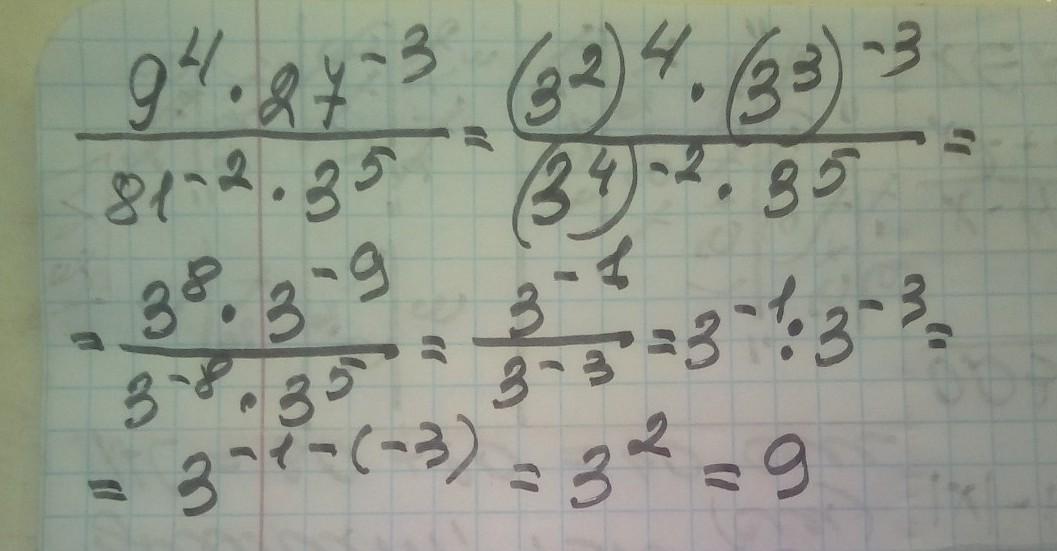 9^4 · 27^-3 / 81^-2 · 3^5 = (3^2)^4 · (3^3)^-3 / (3^4)^-2 · 3^5 =
= 3^8 · 3^-9 / 3^-8 · 3^5 = 3^-1 / 3^-3 = 3^-1 : 3^-3 =
= 3^-1-(-3) = 3^2 = 9